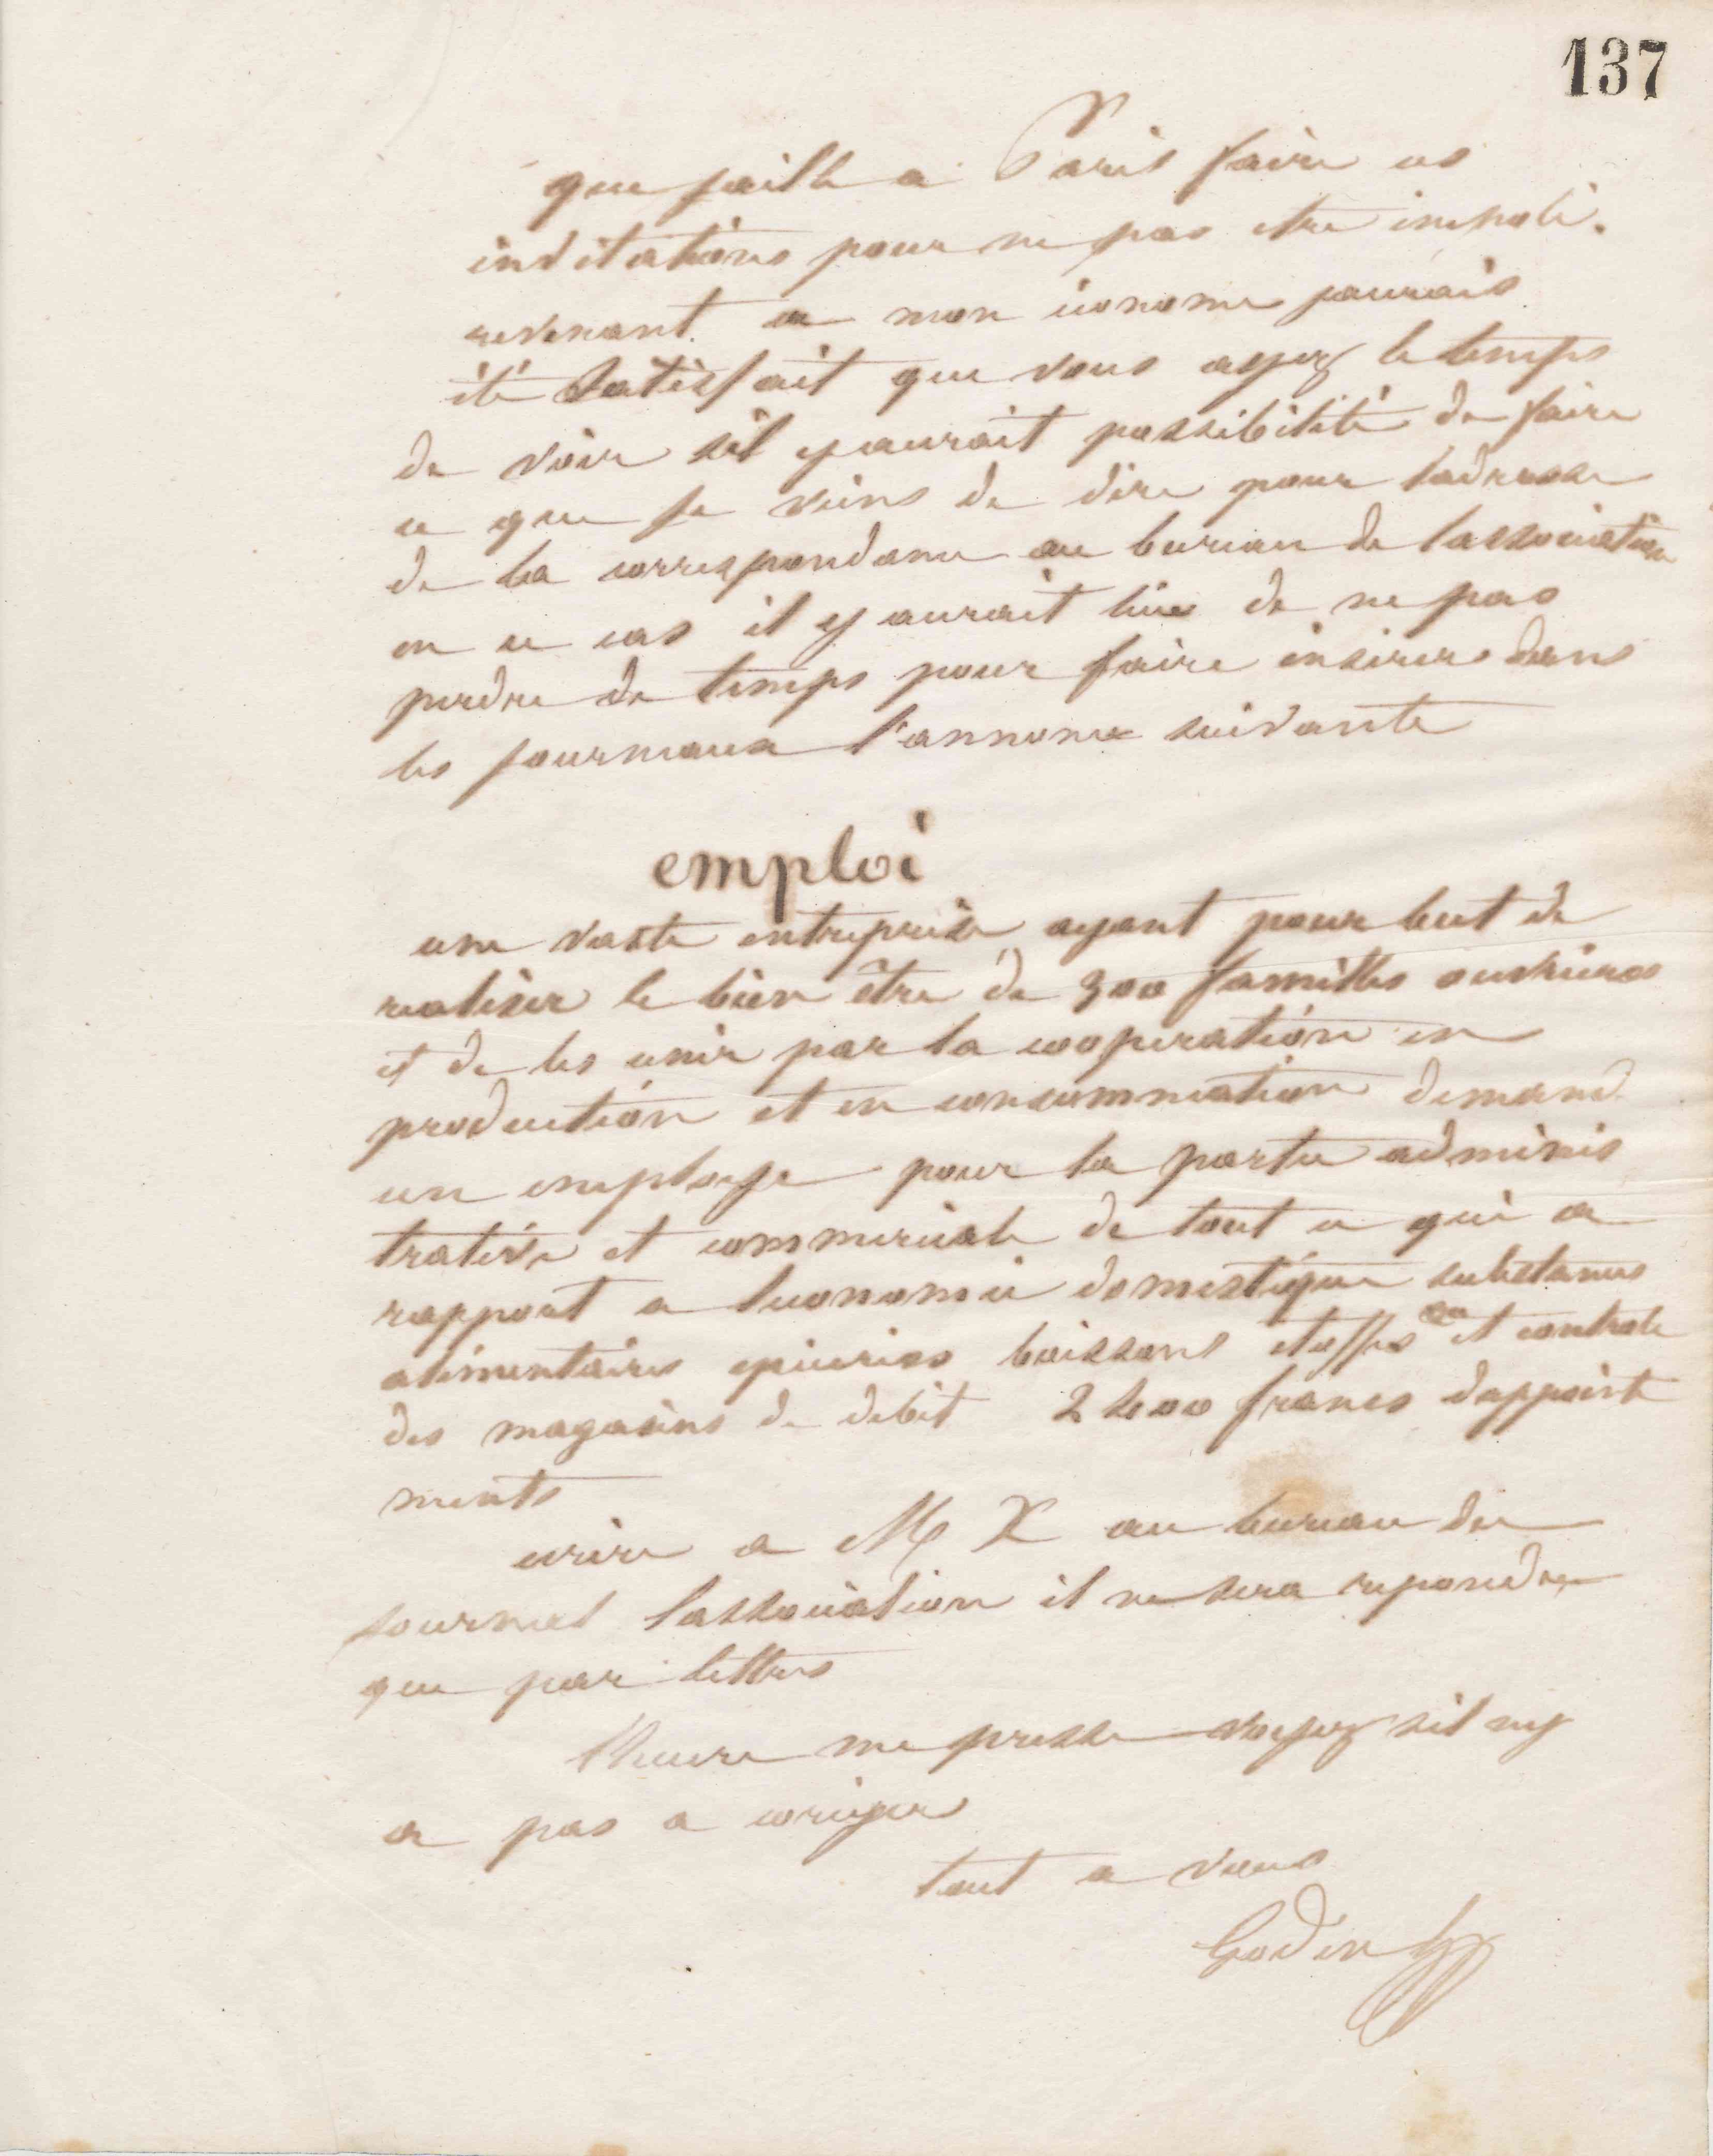 137
que jaille a Paris faire ces
invitations pour ne pas etre impoli.
revenant a mon econome jaurais
été satisfait que vous ayez le temps
de voir sil y aurait possibilité de faire
ce que je viens de dire pour ladresse
de la correspondance au bureau de lassociation
en ce cas il y aurait lieu de ne pas
perdre de temps pour faire inserer dans
les journaux l'annonce suivante
emploi
une vaste entreprise ayant pour but de
realiser le bien être de 300 familles ouvrieres
et de les unir par la cooperation en
production et en consommation demand
un employe pour la partie adminis
trative et commerciale de tout ce qui a
rapport a leconomie domestique substances
alimentaires epiceries boissons etoffes et controle
des magasins de debit 2400 francs dappointe
ments
ecrire a M X au bureau du
journal lassociation il ne sera repondre
que par lettres
lheure me presse voyez sil ny
a pas a coriger
tout a vous
Godin